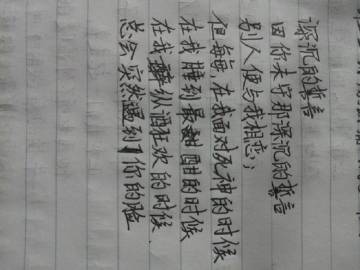 深沉的誓言
因你未守那深沉的誓言
别人便与我相恋;
但每每,在我面对死神的时候
在我睡到最酣的时候
在我纵酒狂欢的时候
总会突然遇到了你的脸